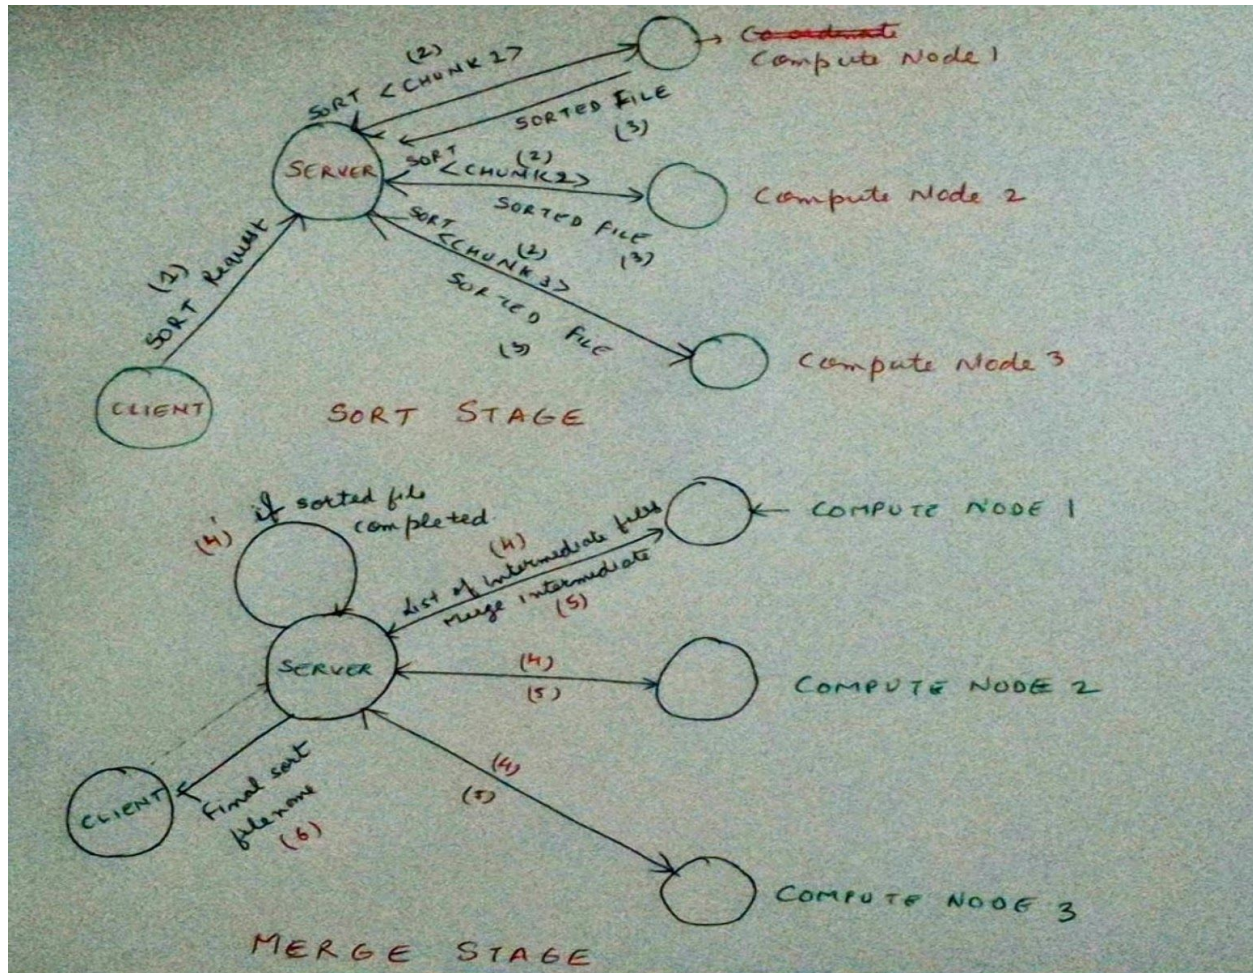 (2)
SORT <CHUNK 1>
Co-ordinate
Compute Node 1
SORTED FILE
(3)
SERVER
SORT
(2)
<CHUNK2>
SORTED FILE
(3)
Compute Node 2
SORT
(2)
<CHUNK 3>
SORTED FILE
(3)
Compute Node 3
(1)
SORT Request
CLIENT
SORT STAGE
(4') if sorted file
completed
(4)
List of intermediate files
Merge intermediate
(5)
COMPUTE NODE 1
SERVER
(4)
(5)
COMPUTE NODE 2
(4)
(5)
COMPUTE NODE 3
CLIENT
Final sort
filename
(6)
MERGE STAGE